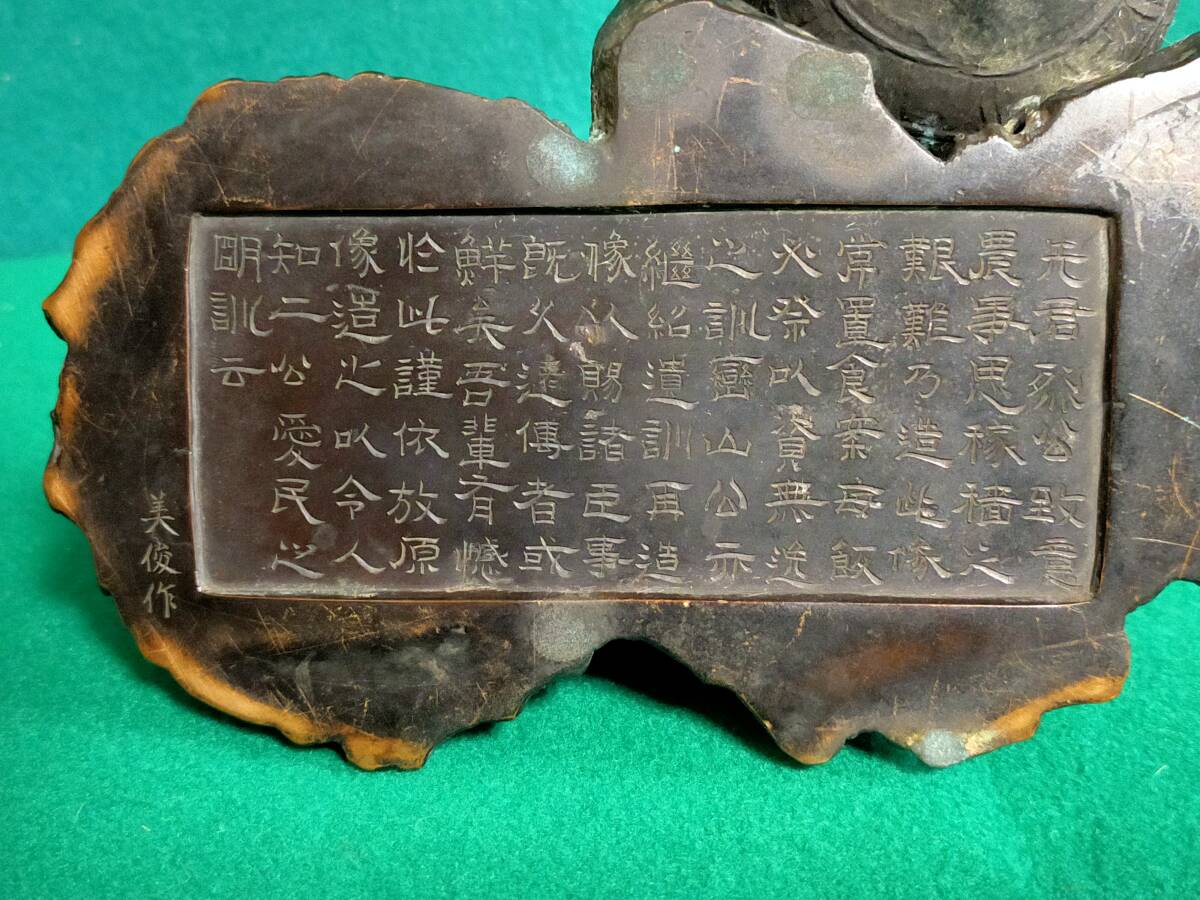 先君烈公致意
農事思稼穡之
艱難乃造此像
常置食案每飯
必祭以資無逸
之訓巒山公亦
繼紹遺訓再造
像以賜諸臣事
既久遠傳者或
鮮矣吾輩有憾
於此謹依放原
像造之以令人
知二公愛民之
明訓云
美俊作